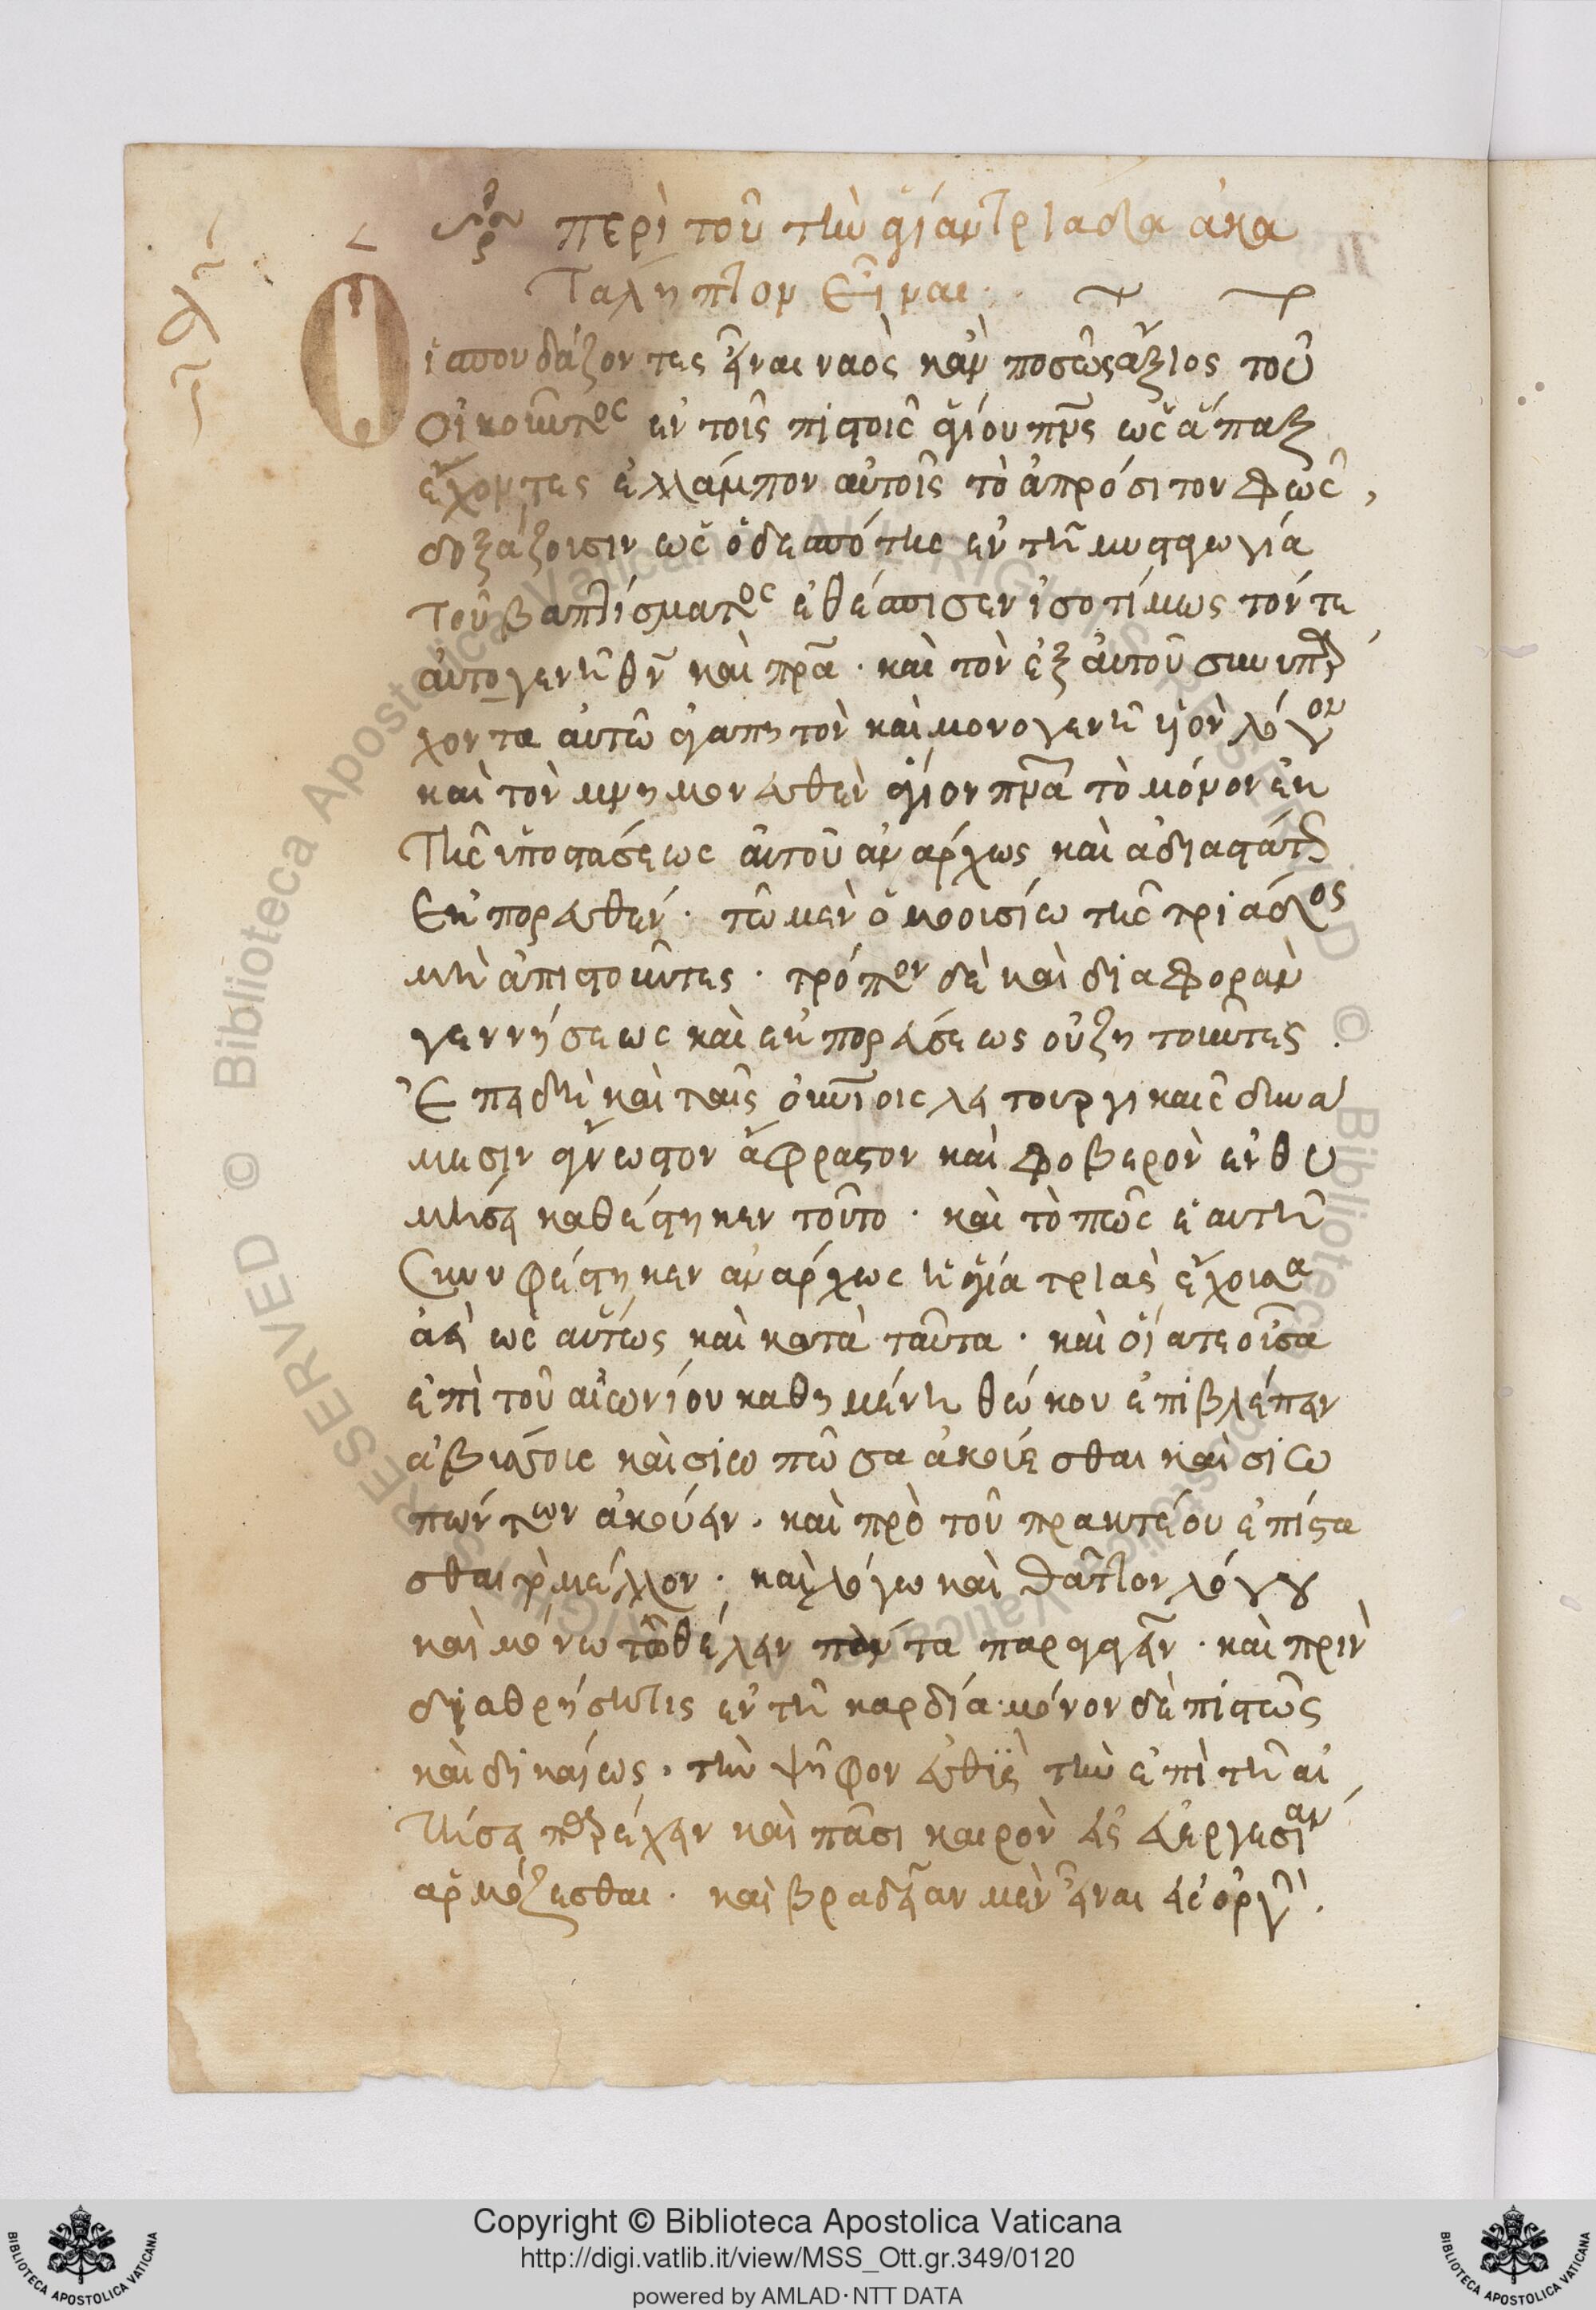 περὶ τοῦ τὴν ἁγίαν τριάδα ἀκα
τάληπτον εἶναι
Οἱ σπουδάζοντες εἶναι ναὸς κἂν ποσῶς ἄξιος τοῦ
οἰκοῦντος ἐν τοῖς πιστοῖς ἁγίου πνς ὡς ἅπαξ
ἔχοντες ἐλλάμπον αὐτοῖς τὸ ἀπρόσιτον φῶς,
δοξάζουσιν ὡς ὁ δεσπότης ἐν τῆ μυσταγωγία
τοῦ βαπτίσματος ἐθέσπισεν ἰσοτίμως τόν τε
αὐτογενῆ θν καὶ πρα · καὶ τὸν ἐξ αὐτοῦ συνυπάρ
χοντα αὐτῶ ἀγαπητὸν καὶ μονογενῆ υἱὸν λόγον
καὶ τὸν μνημονευθὲν ἅγιον πνα τὸ μόνον ἐκ
τῆς ὑποστάσεως αὐτοῦ ἀνάρχως καὶ ἀδιαστάτως
ἐκπορευθέν · τῶ μὲν ὁμοουσίω τῆς τριάδος
μὴ ἀπιστοῦντες · τρόπον δὲ καὶ διαφορὰν
γεννήσεως καὶ ἐκπορεύσεως οὐ ζητοῦντες .
Ἐπειδὴ καὶ ταῖς οὐνίοις λειτουργικαῖς δυνά
μεσιν ἄγνωστον ἄφραστον καὶ φοβερὸν ἐνθυ
μήσει καθέστηκεν τοῦτο · καὶ τὸ πῶς ἑαυτῆ
συνυφέστηκεν ἀνάρχως ἡ ἁγία τριὰς ἔχουσα
ἀεὶ ὡς αὔτως καὶ κατὰ ταῦτα · καὶ οἵα τε οὖσα
ἐπὶ τοῦ αἰωνίου καθημένη θώκου ἐπιβλέπειν
ἀβύσσοις καὶ σιωπῶσα ἀκούεσθαι καὶ σιω
πώντων ἀκούειν · καὶ πρὸ τοῦ πρακτέου ἐπίστα
σθαι τὸ μέλλον · καὶ λόγω καὶ θᾶττον λόγου
καὶ μόνω τῶ θέλειν πάντα παραγαγεῖν · καὶ πρὶν
διαθρήση τις ἐν τῆ καρδία · μόνον δὲ πιστῶς
καὶ δικαίως · τὴν ψῆφον εὐθὺς τὴν ἐπὶ τῆ αἰ
τήσει παρέχειν καὶ πᾶσι καιρὸν εἰς εὐεργεσίαν
ἁρμόζεσθαι · καὶ βραδεῖαν μὲν εἶναι εἰς ὀργὴν .
Copyright © Biblioteca Apostolica Vaticana
http://digi.vatlib.it/view/MSS_Ott.gr.349/0120
powered by AMLAD·NTT DATA
BIBLIOTECA APOSTOLICA VATICANA
BIBLIOTECA APOSTOLICA VATICANA